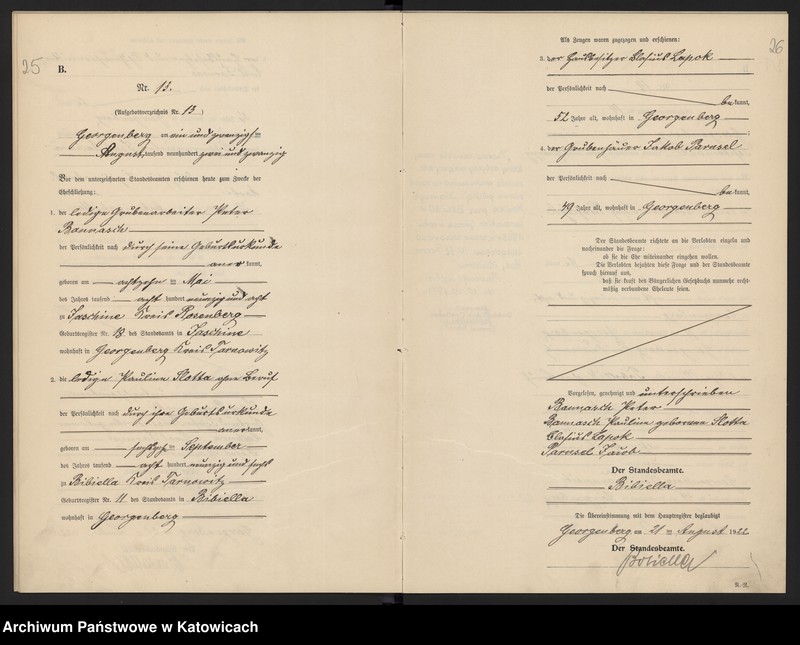 25
B.
Nr. 13.
(Aufgebotsverzeichnis Nr. 13)
Georgenberg am ein und zwanzigsten
August tausend neunhundert zwei und zwanzig
Vor dem unterzeichneten Standesbeamten erschienen heute zum Zwecke der
Eheschließung:
1. der ledige Grubenarbeiter Peter
Bannasch
der Persönlichkeit nach durch seine Geburtsurkunde
anerkannt,
geboren am achtzehn ten Mai
des Jahres tausend acht hundert neunzig und acht
zu Jaschine Kreis Rosenberg
Geburtsregister Nr. 18 des Standesamts in Jaschine
wohnhaft in Georgenberg Kreis Tarnowitz
2. die ledige Pauline Slotta ohne Beruf
der Persönlichkeit nach durch ihre Geburtsurkunde
anerkannt,
geboren am September
des Jahres tausend acht hundert neunzig und sechs
zu Bibiella Kreis Tarnowitz
Geburtsregister Nr. 11 des Standesamts in Bibiella
wohnhaft in Georgenberg
26
Als Zeugen waren zugezogen und erschienen:
3. der Hausbesitzer Blasius Lapok
der Persönlichkeit nach
bekannt,
52 Jahre alt, wohnhaft in Georgenberg
4. der Grubenhäuer Jakob Parusel
der Persönlichkeit nach
bekannt,
49 Jahre alt, wohnhaft in Georgenberg
Der Standesbeamte richtete an die Verlobten einzeln und
nacheinander die Frage:
ob sie die Ehe miteinander eingehen wollen.
Die Verlobten bejahten diese Frage und der Standesbeamte
sprach hierauf aus,
daß sie kraft des Bürgerlichen Gesetzbuchs nunmehr recht-
mäßig verbundene Eheleute seien.
Vorgelesen, genehmigt und unterschrieben
Bannasch Peter
Bannasch Pauline geborene Slotta
Blasius Lapok
Parusel Jacob
Der Standesbeamte.
Bibiella
Die Übereinstimmung mit dem Hauptregister beglaubigt
Georgenberg am 21 ten August 1922
Der Standesbeamte.
Bibiella
Archiwum Państwowe w Katowicach